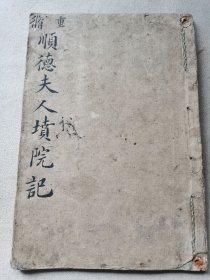 重脩
順德夫人墳院記